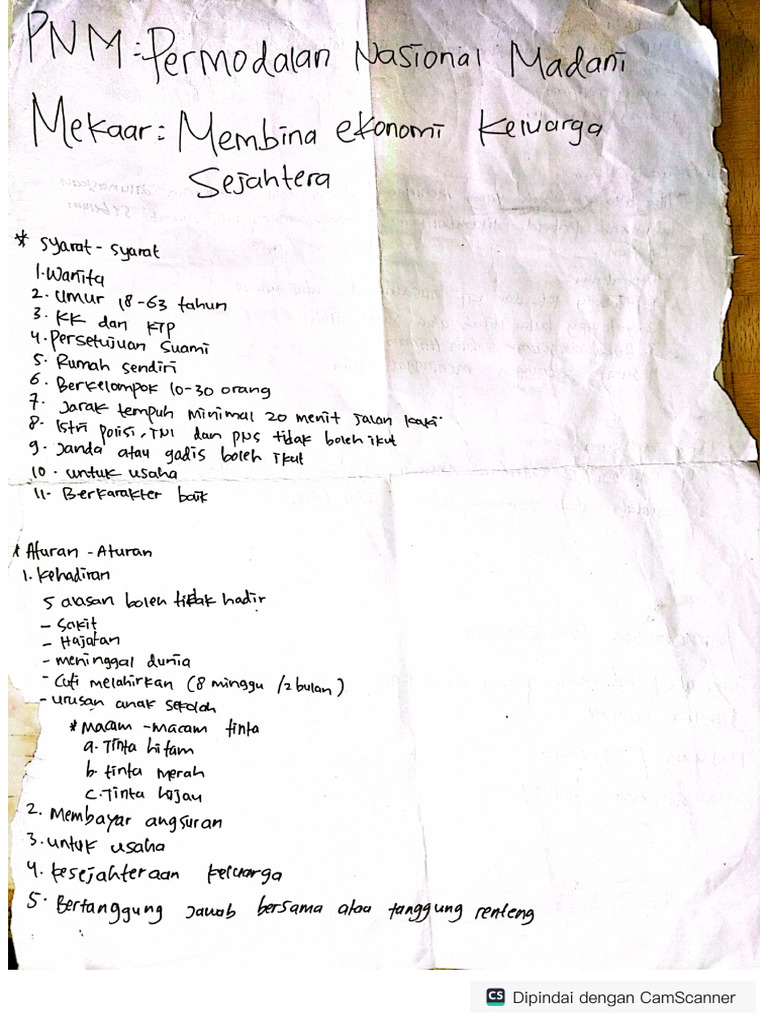 PNM : Permodalan Nasional Madani
Mekaar : Membina ekonomi Keluarga
Sejahtera
* Syarat - Syarat
1. Wanita
2. Umur 18 - 63 tahun
3. KK dan KTP
4. Persetujuan Suami
5. Rumah sendiri
6. Berkelompok 10-30 orang
7. Jarak tempuh minimal 20 menit jalan kaki
8. Istri polisi, TNI dan PNS tidak boleh ikut
9. Janda atau gadis boleh ikut
10. untuk usaha
11. Berkarakter baik
* Aturan - Aturan
1. kehadiran
5 alasan boleh tidak hadir
- Sakit
- Hajatan
- meninggal dunia
- Cuti melahirkan (8 minggu /2 bulan)
- urusan anak sekolah
* Macam - macam tinta
a. Tinta hitam
b. tinta merah
c. Tinta hijau
2. Membayar angsuran
3. untuk usaha
4. kesejahteraan keluarga
5. Bertanggung jawab bersama atau tanggung renteng
CS Dipindai dengan CamScanner